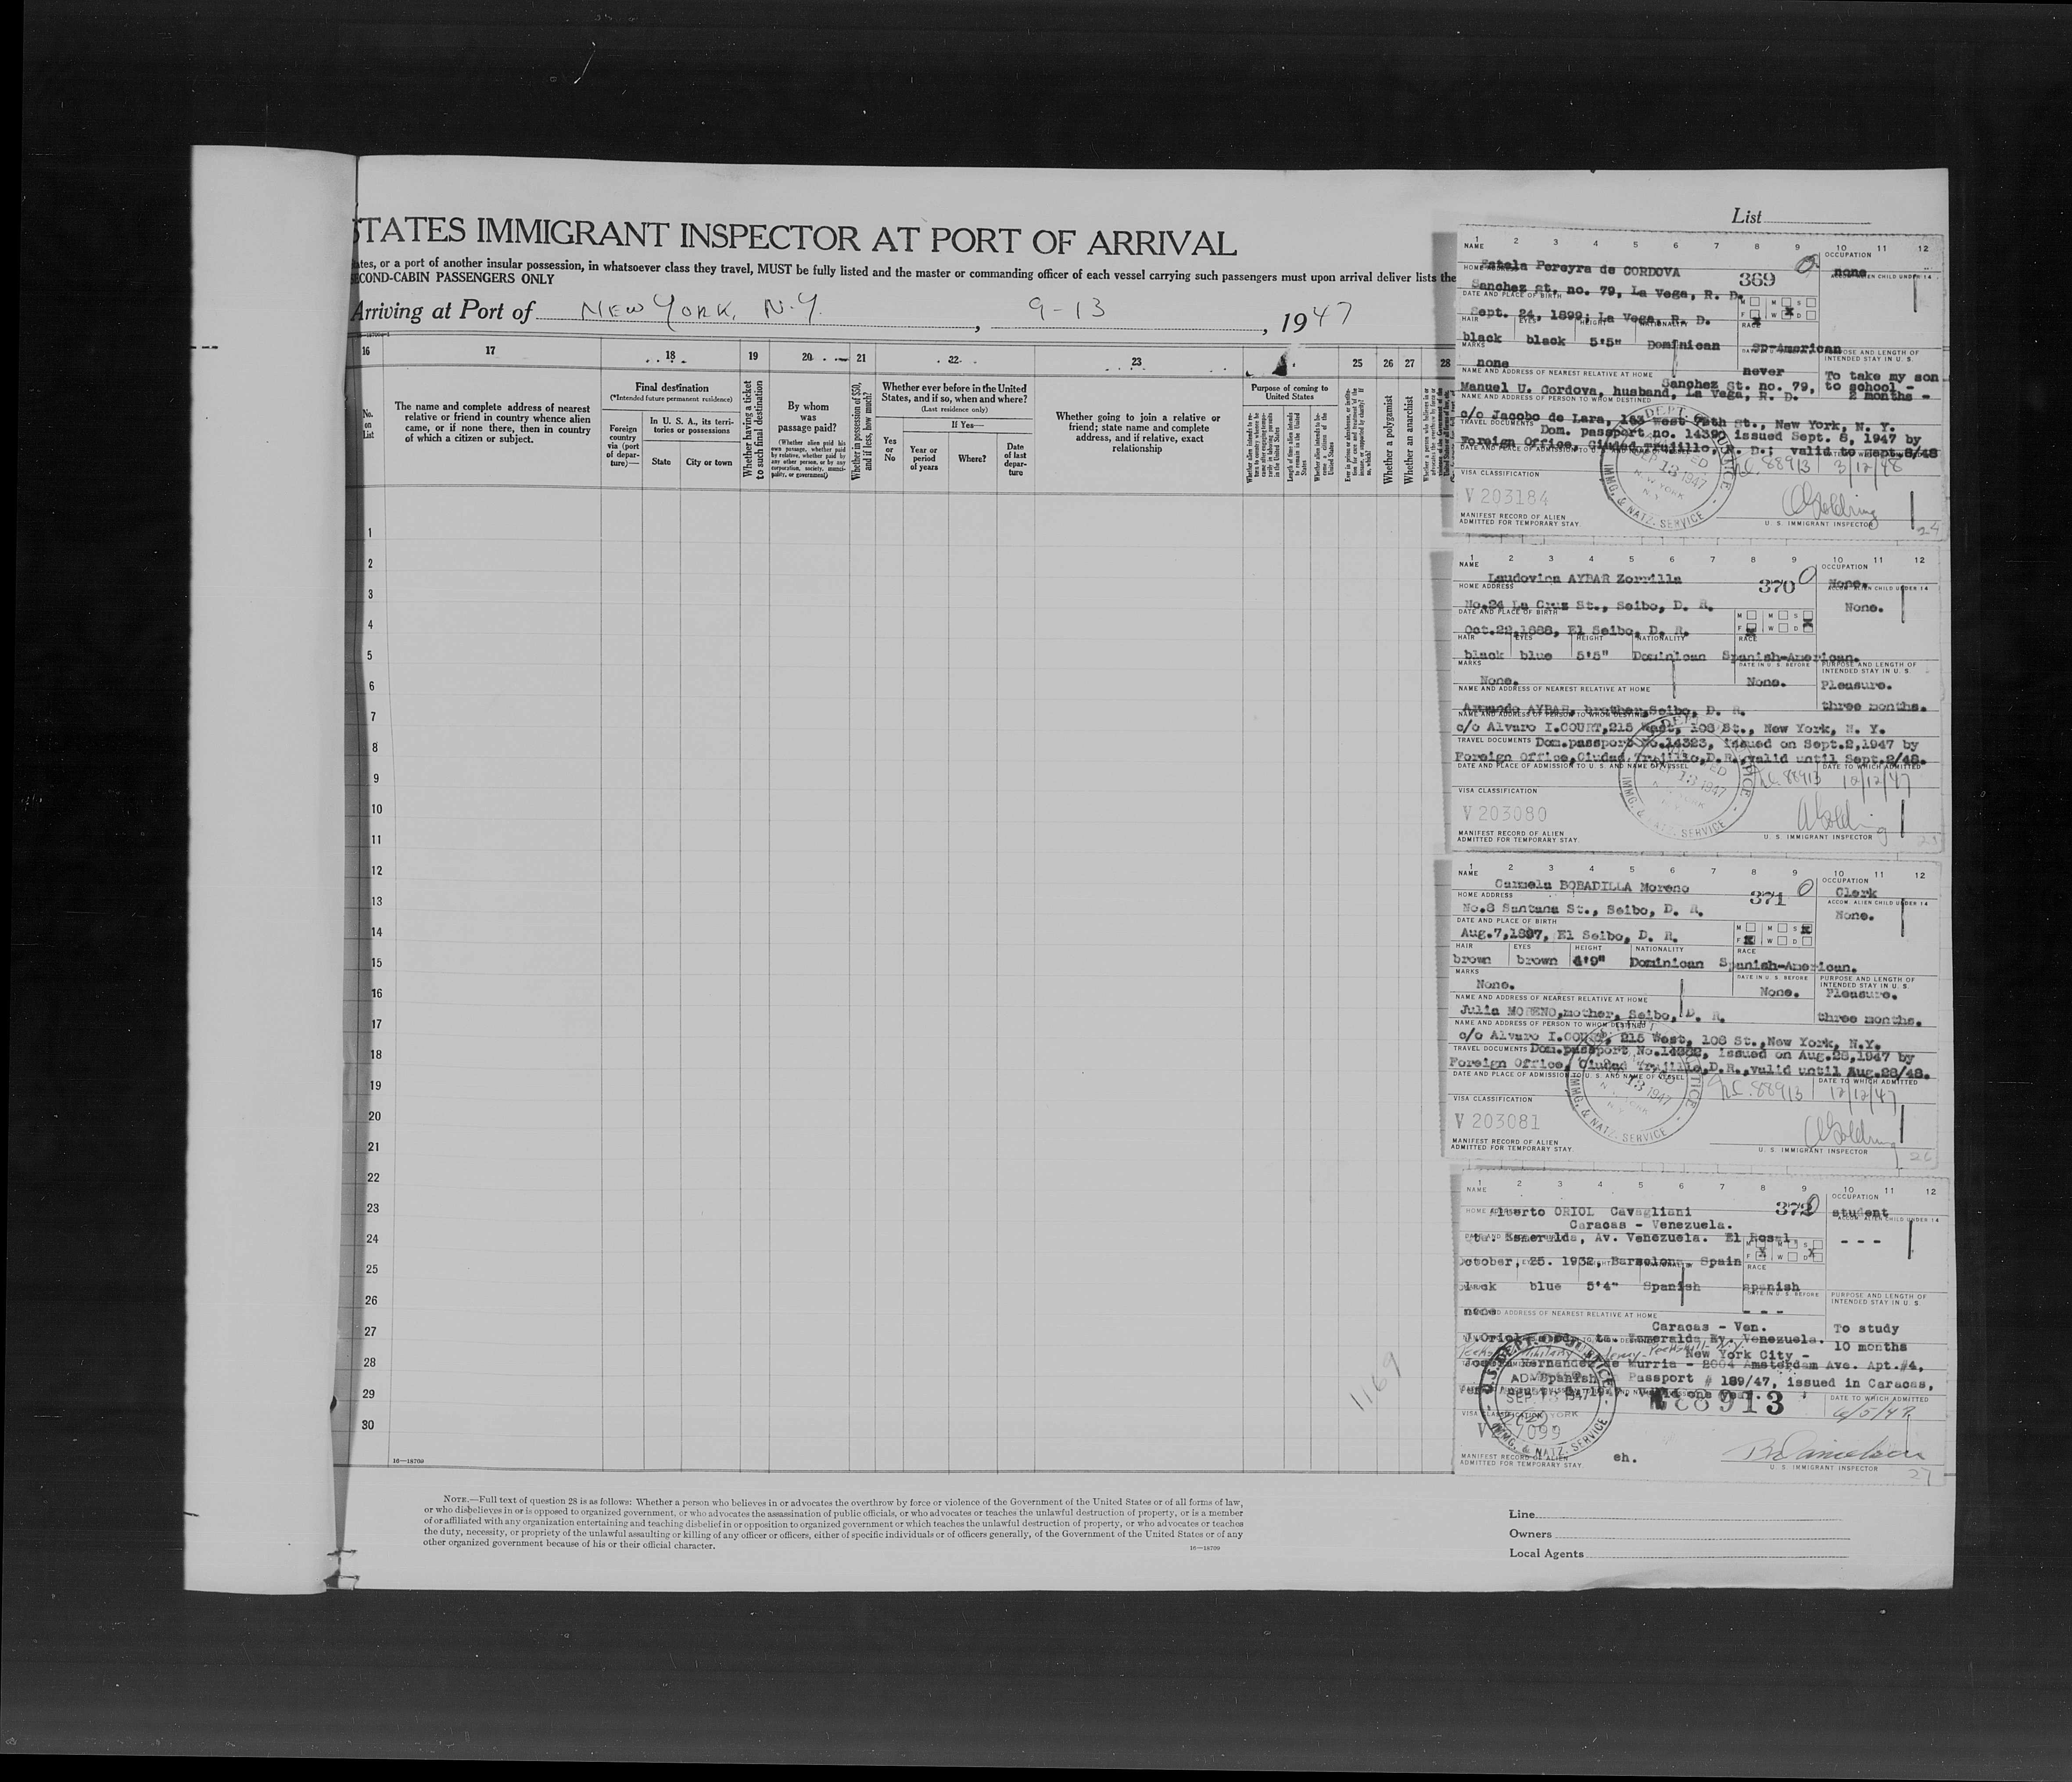 List
STATES IMMIGRANT INSPECTOR AT PORT OF ARRIVAL
ates, or a port of another insular possession, in whatsoever class they travel, MUST be fully listed and the master or commanding officer of each vessel carrying such passengers must upon arrival deliver lists the
ECOND-CABIN PASSENGERS ONLY
Arriving at Port of NEW YORK, N.Y. , 9-13 , 1947
16 17 18 19 20 21 22 23 25 26 27 28
No. on List
The name and complete address of nearest
relative or friend in country whence alien
came, or if none there, then in country
of which a citizen or subject.
Final destination
(*Intended future permanent residence)
Foreign
country
via (port
of depar-
ture)—
In U. S. A., its terri-
tories or possessions
State
City or town
Whether having a ticket
to such final destination
By whom
was
passage paid?
(Whether alien paid his
own passage, whether paid
by relative, whether paid by
any other person, or by any
corporation, society, munici-
pality, or government)
Whether in possession of $50,
and if less, how much?
Whether ever before in the United
States, and if so, when and where?
(Last residence only)
Yes
or
No
If Yes—
Year or
period
of years
Where?
Date
of last
depar-
ture
Whether going to join a relative or
friend; state name and complete
address, and if relative, exact
relationship
Purpose of coming to
United States
Whether a polygamist
Whether an anarchist
1
2
3
4
5
6
7
8
9
10
11
12
13
14
15
16
17
18
19
20
21
22
23
24
25
26
27
28
29
30
16—18709
1169
NOTE.—Full text of question 28 is as follows: Whether a person who believes in or advocates the overthrow by force or violence of the Government of the United States or of all forms of law,
or who disbelieves in or is opposed to organized government, or who advocates the assassination of public officials, or who advocates or teaches the unlawful destruction of property, or is a member
of or affiliated with any organization entertaining and teaching disbelief in or opposition to organized government or which teaches the unlawful destruction of property, or who advocates or teaches
the duty, necessity, or propriety of the unlawful assaulting or killing of any officer or officers, either of specific individuals or of officers generally, of the Government of the United States or of any
other organized government because of his or their official character.
16—18709
1 2 3 4 5 6 7 8 9 10 11 12
NAME
OCCUPATION
Estela Pereyra de CORDOVA 369 none
HOME ADDRESS
ACCOM. ALIEN CHILD UNDER 14
Sanchez st. no. 79, La Vega, R. D.
DATE AND PLACE OF BIRTH
M M S
F W D
Sept. 24, 1899; La Vega, R. D.
HAIR EYES HEIGHT NATIONALITY RACE
black black 5'5" Dominican SP-American
MARKS
PURPOSE AND LENGTH OF
INTENDED STAY IN U. S.
none never To take my son
NAME AND ADDRESS OF NEAREST RELATIVE AT HOME
Sanchez St. no. 79, to school -
Manuel U. Cordova, husband, La Vega, R. D. 2 months -
NAME AND ADDRESS OF PERSON TO WHOM DESTINED
c/o Jacobo de Lara, 163 West 75th st., New York, N. Y.
TRAVEL DOCUMENTS
Dom. Passport no. 14390 issued Sept. 8, 1947 by
Foreign Office, Ciudad Trujillo, R. D.; valid to sept.8/48
88913 3/12/48
VISA CLASSIFICATION
V 203184
SEP 13 1947
NEW YORK
N. Y.
IMMG. & NATZ. SERVICE
MANIFEST RECORD OF ALIEN
ADMITTED FOR TEMPORARY STAY
U. S. IMMIGRANT INSPECTOR
24
1 2 3 4 5 6 7 8 9 10 11 12
NAME
OCCUPATION
Laudovina AYBAR Zorrilla 370 None.
HOME ADDRESS
ACCOM. ALIEN CHILD UNDER 14
No.24 La Cruz St., Seibo, D. R. None.
DATE AND PLACE OF BIRTH
M M S
F W D
Oct.22,1888, El Seibo, D. R.
HAIR EYES HEIGHT NATIONALITY RACE
black blue 5'5" Dominican Spanish-American.
MARKS
DATE IN U. S. BEFORE
PURPOSE AND LENGTH OF
INTENDED STAY IN U. S.
None. None. Pleasure.
NAME AND ADDRESS OF NEAREST RELATIVE AT HOME
Armando AYBAR, brother,Seibo, D. R. three months.
NAME AND ADDRESS OF PERSON TO WHOM DESTINED
c/o Alvaro I.COURT,215 West, 108 St., New York, N. Y.
TRAVEL DOCUMENTS
Dom.passport No.14323, issued on Sept.2,1947 by
Foreign Office,Ciudad Trujillo,D.R.,valid until Sept.2/48.
DATE AND PLACE OF ADMISSION TO U. S. AND NAME OF VESSEL
DATE TO WHICH ADMITTED
88913 12/12/47
VISA CLASSIFICATION
V 203080
13 1947
IMMG. & NATZ. SERVICE
MANIFEST RECORD OF ALIEN
ADMITTED FOR TEMPORARY STAY
U. S. IMMIGRANT INSPECTOR
1 2 3 4 5 6 7 8 9 10 11 12
NAME
OCCUPATION
Carmela BOBADILLA Moreno 371 Clerk
HOME ADDRESS
ACCOM. ALIEN CHILD UNDER 14
No.8 Santana St., Seibo, D. R. None.
DATE AND PLACE OF BIRTH
M M S
F W D
Aug.7,1897, El Seibo, D. R.
HAIR EYES HEIGHT NATIONALITY RACE
brown brown 4'9" Dominican Spanish-American.
MARKS
DATE IN U. S. BEFORE
PURPOSE AND LENGTH OF
INTENDED STAY IN U. S.
None. None. Pleasure.
NAME AND ADDRESS OF NEAREST RELATIVE AT HOME
Julia MORENO,mother, Seibo, D. R. three months.
NAME AND ADDRESS OF PERSON TO WHOM DESTINED
c/o Alvaro I.COURT, 215 West, 108 St.,New York, N.Y.
TRAVEL DOCUMENTS
Dom.passport No. issued on Aug.28,1947 by
Foreign Office, Ciudad Trujillo,D.R.,valid until Aug.28/48.
DATE AND PLACE OF ADMISSION TO U. S. AND NAME OF VESSEL
DATE TO WHICH ADMITTED
88913 12/12/47
VISA CLASSIFICATION
V 203081
13 1947
IMMG. & NATZ. SERVICE
MANIFEST RECORD OF ALIEN
ADMITTED FOR TEMPORARY STAY.
U. S. IMMIGRANT INSPECTOR
26
1 2 3 4 5 6 7 8 9 10 11 12
NAME
OCCUPATION
Alberto ORIOL Cavagliani 372 student
HOME ADDRESS
ACCOM. ALIEN CHILD UNDER 14
Caracas - Venezuela.
Esmeralda, Av. Venezuela. El Rosal. - - -
October, 25. 1932, Barcelona Spain
RACE
black blue 5'4" Spanish spanish
PURPOSE AND LENGTH OF
INTENDED STAY IN U. S.
none - - -
NAME AND ADDRESS OF NEAREST RELATIVE AT HOME
Caracas - Ven. To study
J.Oriol Esmeralda Av. Venezuela. 10 months
New York City -
Hernandez de Murria - 2004 Amsterdam Ave. Apt.#4,
Spanish Passport # 189/47, issued in Caracas,
valid one year.
88913
DATE TO WHICH ADMITTED
U.S. DEPT. OF JUSTICE
SEP 13 1947
NEW YORK
IMMG. & NATZ. SERVICE
VISA CLASSIFICATION
7099
MANIFEST RECORD OF ALIEN
ADMITTED FOR TEMPORARY STAY.
eh.
U. S. IMMIGRANT INSPECTOR
27
Line
Owners
Local Agents